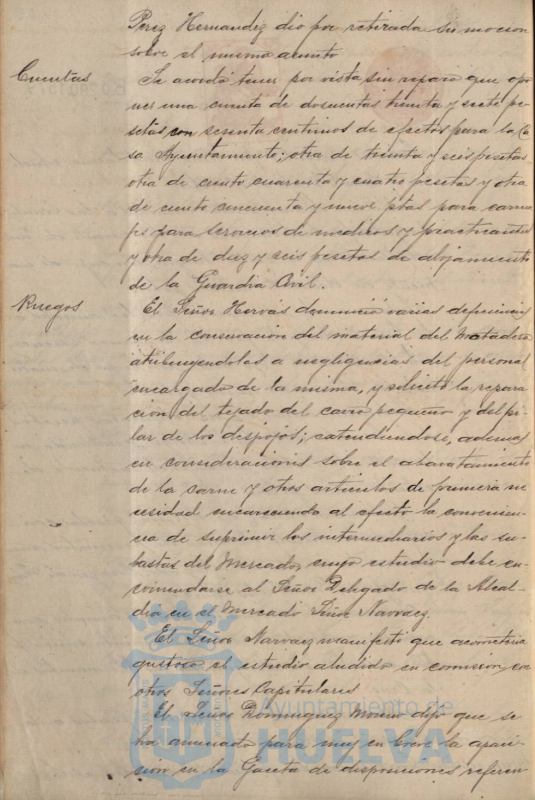 Perez Hernandez dio por retirada su mocion
sobre el mismo asunto
Cuentas
Se acordó tener por vista, sin reparo que opo
ner una cuenta de doscuentas treinta y siete pe
setas con sesenta centimos de efectos para la Ca
sa Ayuntamiento; otra de treinta y seis pesetas
otra de ciento cuarenta y cuatro pesetas y otra
de ciento cincuenta y nueve ptas para carrua
jes para servicios de medicos y practicantes
y otra de diez y seis pesetas de alojamiento
de la Guardia Civil.
Ruegos
El Señor Hervás denunció varias deficiencias
en la conservacion del material del Matadero
atribuyendolas a negligencias del personal
encargado de la misma, y solicitó la repara
cion del tejado del carro pequeño y del pi
lar de los despojos; extendiendose, ademas
en consideraciones sobre el abaratamiento
de la carne y otros articulos de primera ne
cesidad encareciendo al efecto la convenien
cia de suprimir los intermediarios y las su
bastas del Mercado, cuyo estudio debe en
comendarse al Señor Delegado de la Alcal-
dia en el Mercado Señor Narvaez.
El Señor Narvaez manifestó que acometeria
gustoso el estudio aludido en comision, con
otros Señores Capitulares
El Señor Dominguez Moreno dijo que se
ha anunciado para muy en breve la apari-
sion en la Gaceta de disposiciones referen
Ayuntamiento de
HUELVA